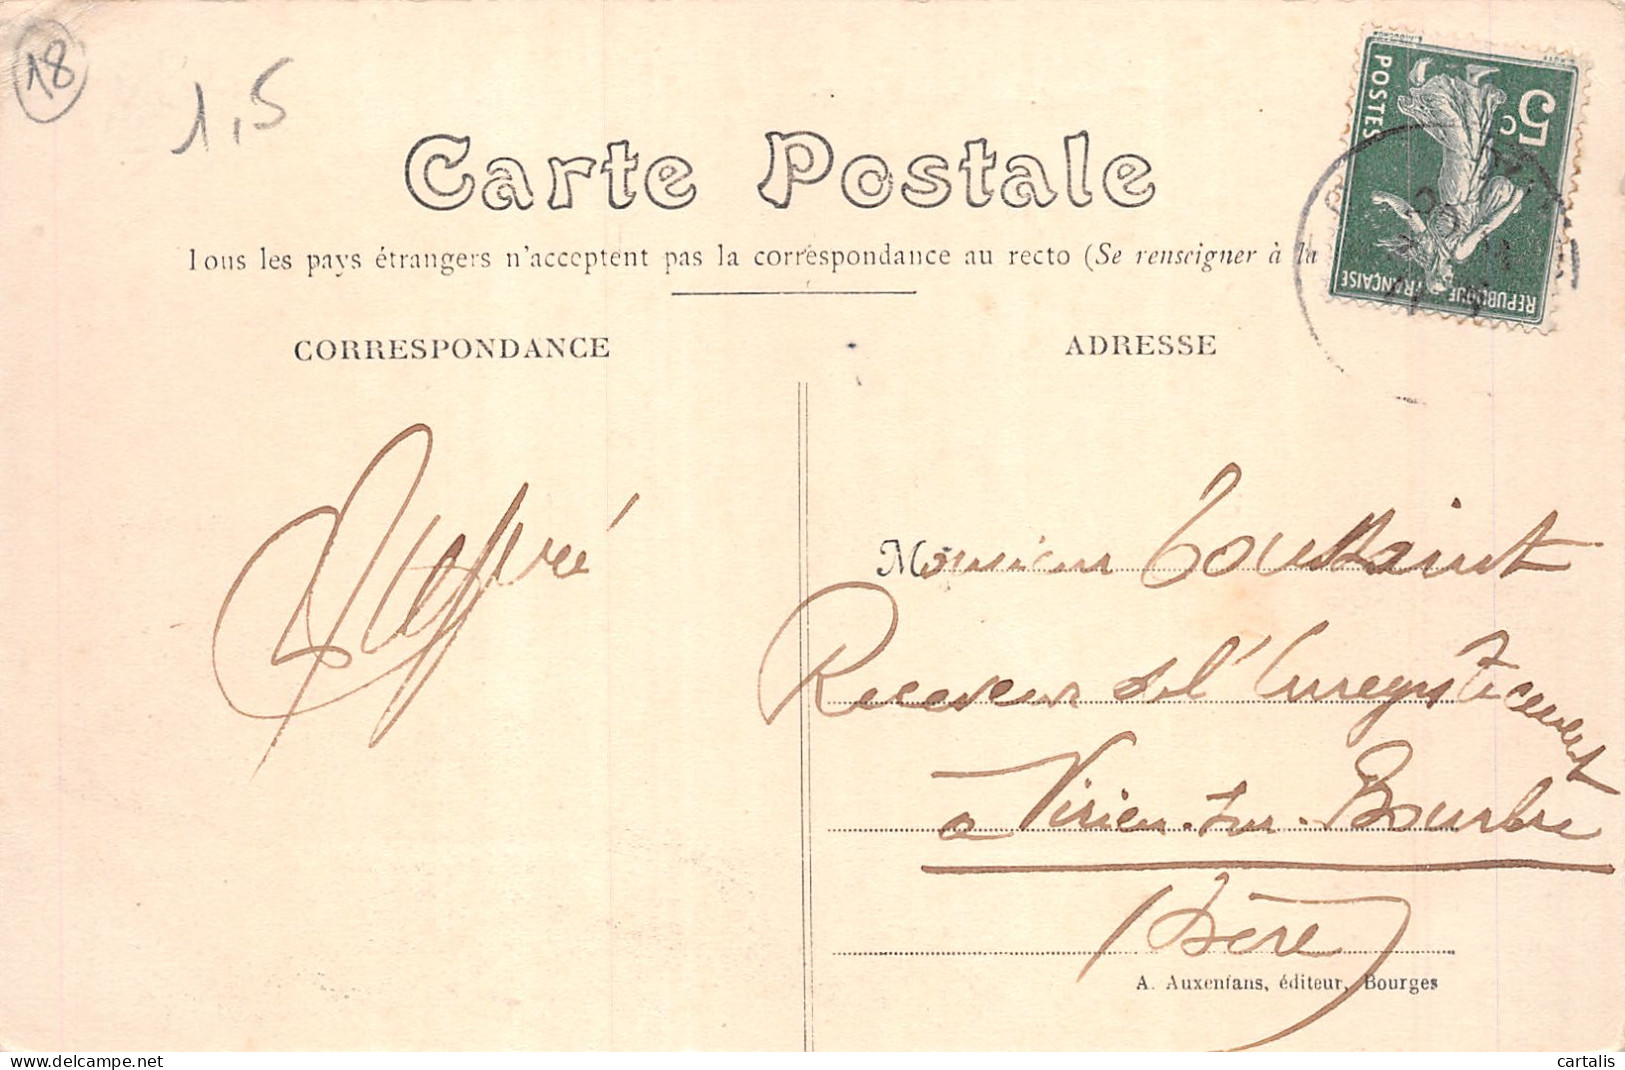 18
1,5
Carte Postale
Tous les pays étrangers n'acceptent pas la correspondance au recto (Se renseigner à la
5c
POSTES
REPUBLIQUE FRANÇAISE
CORRESPONDANCE
ADRESSE
Monsieur Toussaint
Receveur de l'Enregistrement
à Virieu-sur-Bourbre
(Isère)
A. Auxenfans, éditeur, Bourges
cartalis